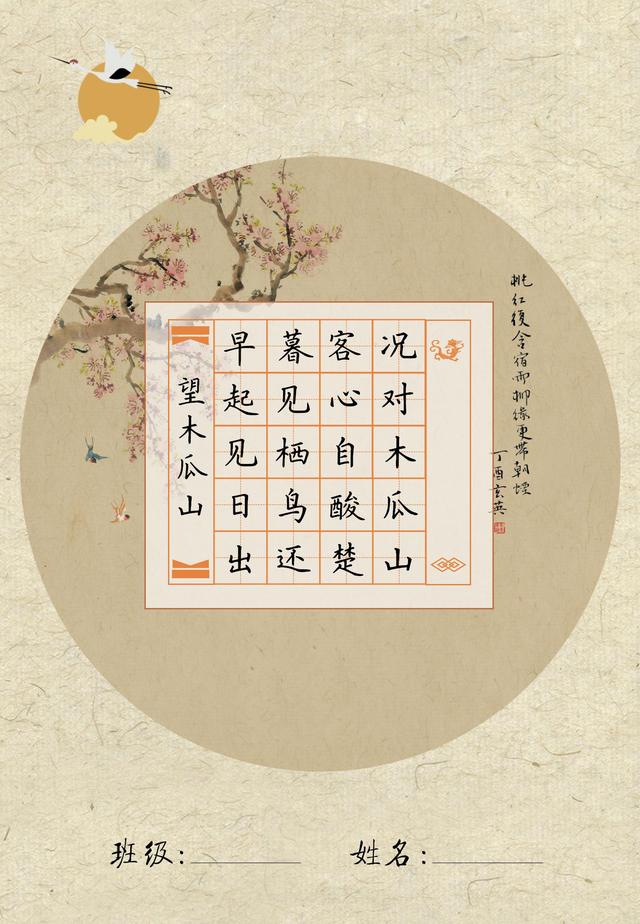 望木瓜山
早起见日出
暮见栖鸟还
客心自酸楚
况对木瓜山
桃红復含宿雨柳绿更带朝烟
丁酉玄英
班级:
姓名: